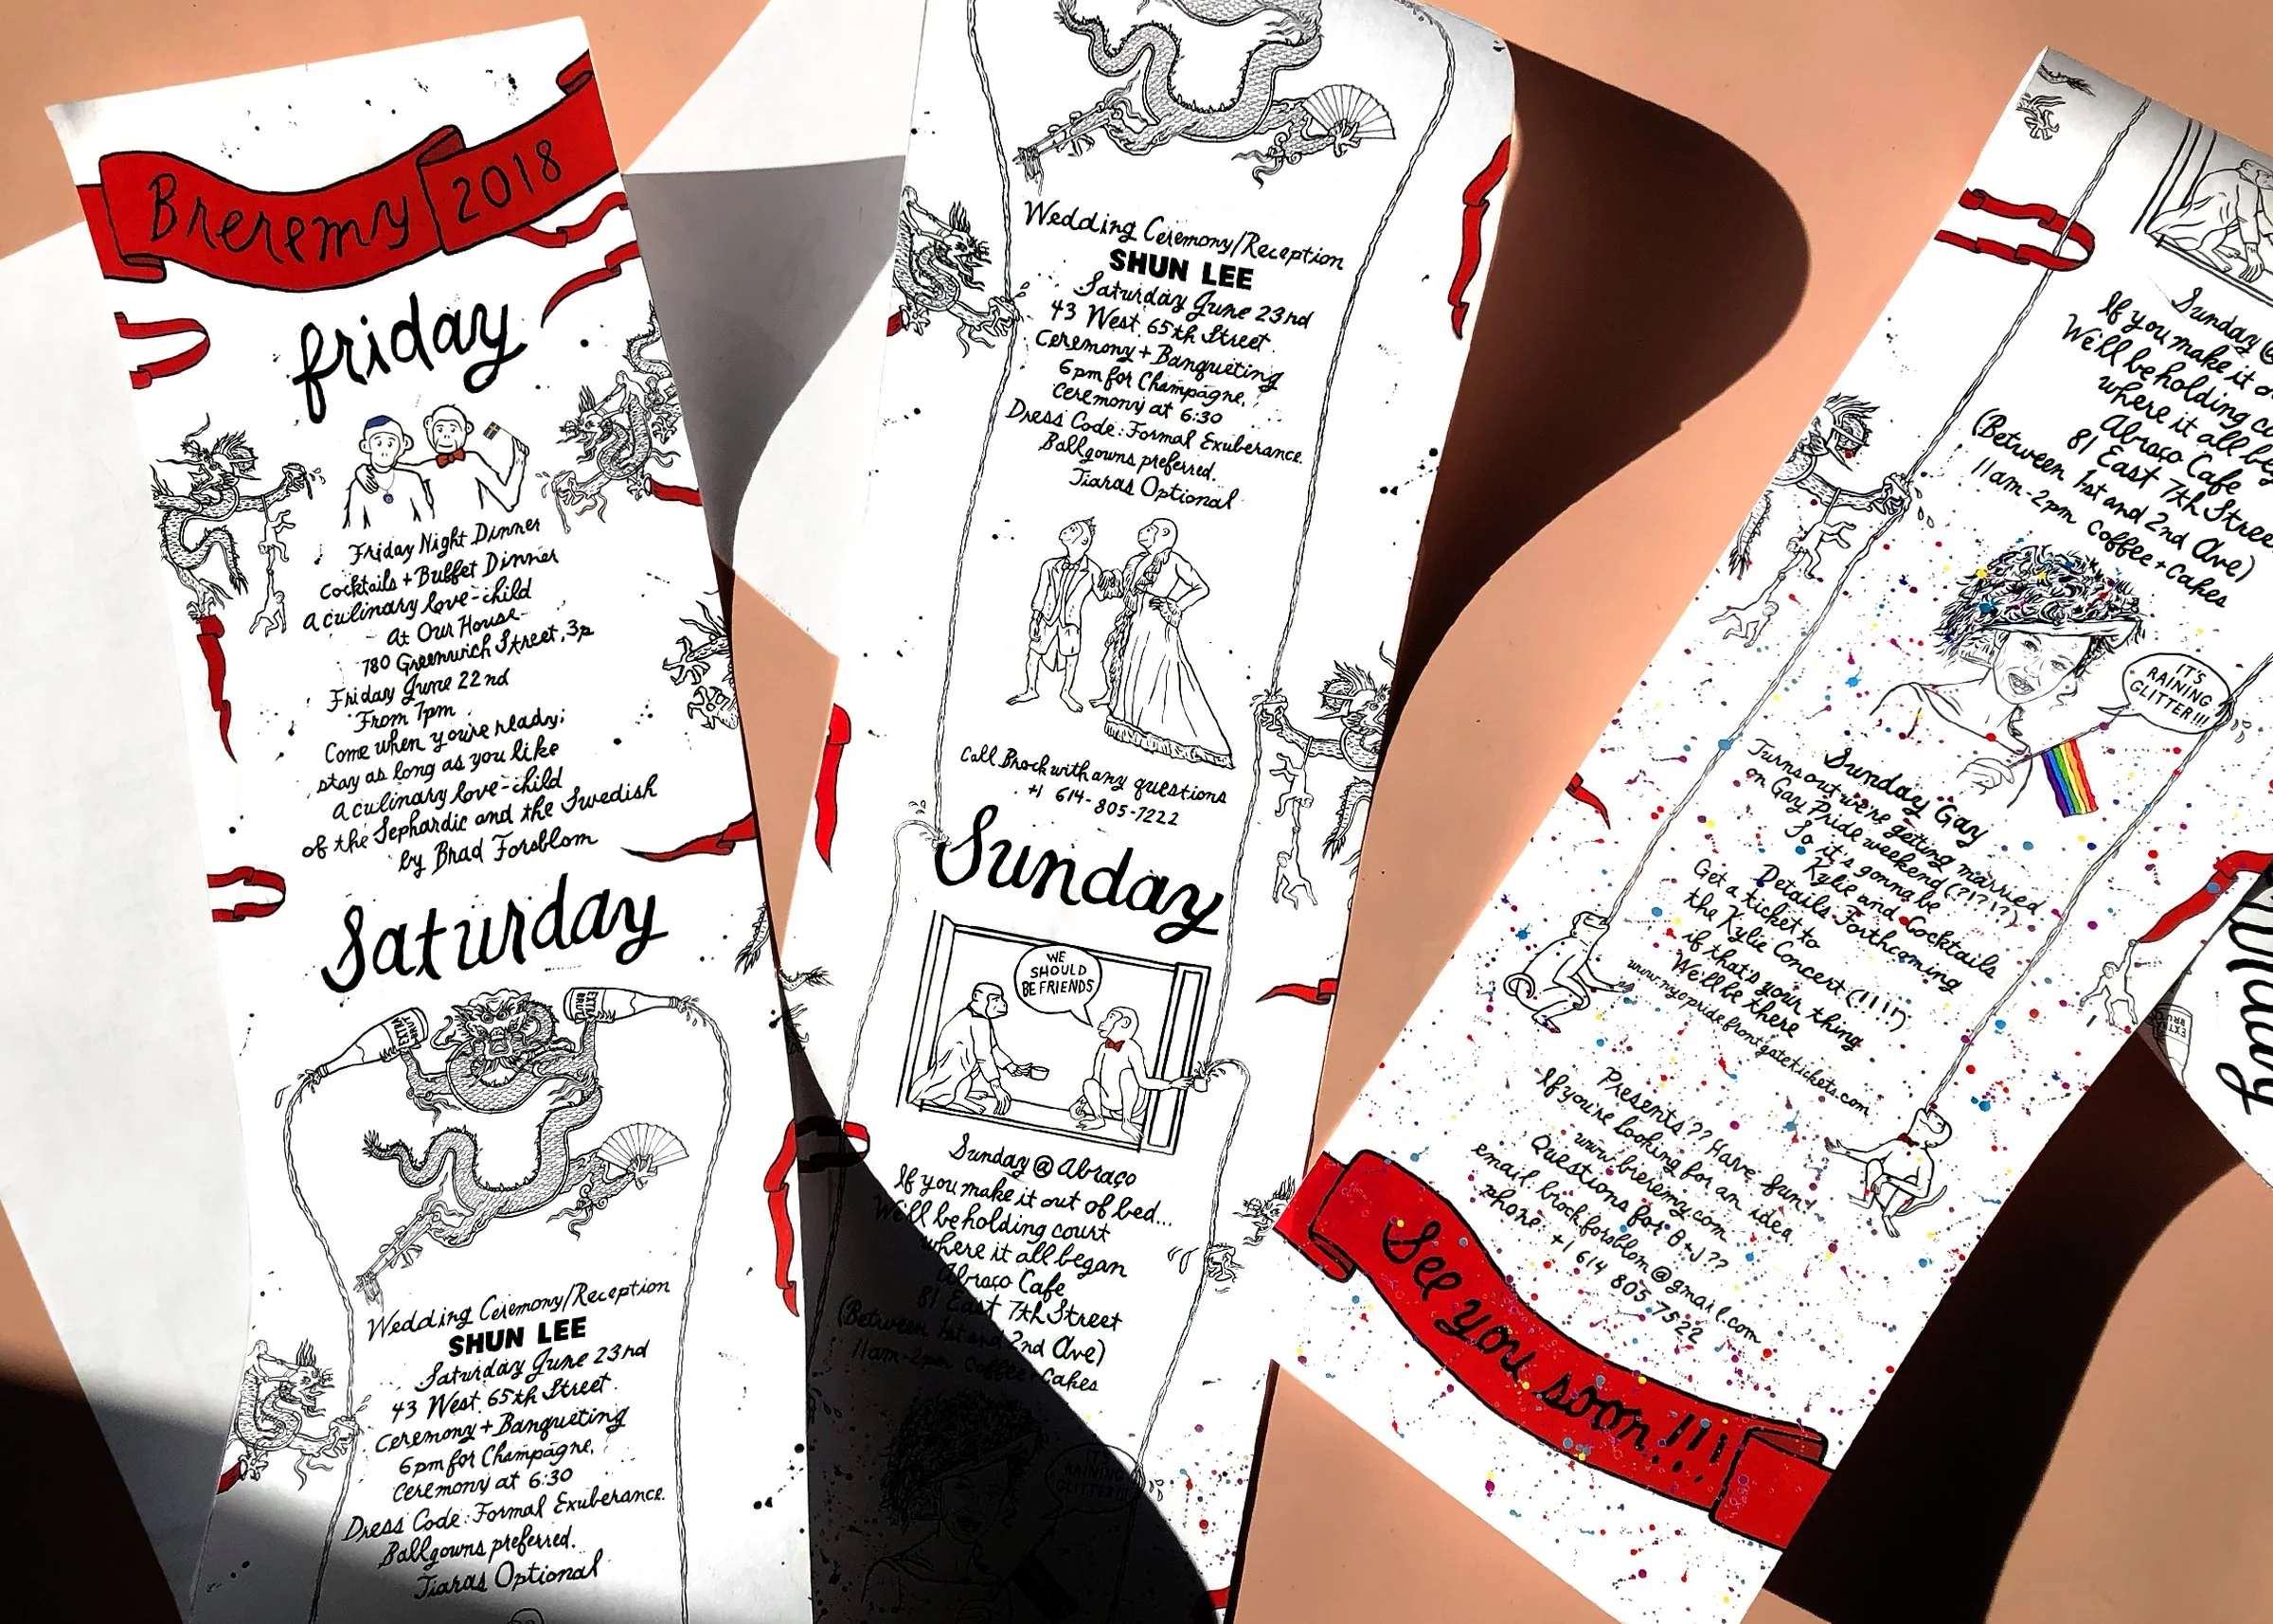 Breremy 2018
friday
Friday Night Dinner
Cocktails + Buffet Dinner
a culinary love-child
at Our House
780 Greenwich Street, 3p
Friday June 22nd
From 7pm
Come when you're ready;
stay as long as you like
a culinary love-child
of the Sephardic and the Swedish
by Brad Forsblom
Saturday
EXTRA BRUT
EXTRA BRUT
Wedding Ceremony/Reception
SHUN LEE
Saturday June 23rd
43 West 65th Street
Ceremony + Banqueting
6pm for Champagne,
Ceremony at 6:30
Dress Code: Formal Exuberance.
Ballgowns preferred.
Tiaras Optional
Wedding Ceremony/Reception
SHUN LEE
Saturday June 23rd
43 West 65th Street
Ceremony + Banqueting
6pm for Champagne,
Ceremony at 6:30
Dress Code: Formal Exuberance.
Ballgowns preferred.
Tiaras Optional
Call Brock with any questions
+1 614-805-7222
Sunday
WE
SHOULD
BE FRIENDS
Sunday @ Abraço
If you make it out of bed...
We'll be holding court
where it all began
Abraço Cafe
81 East 7th Street
(Between 1st and 2nd Ave)
11am-2pm coffee + Cakes
IT'S
RAINING
GLITTER!!!
Sunday @
If you make it o
We'll be holding co
where it all beg
Abraço Cafe
81 East 7th Stree
(Between 1st and 2nd Ave)
11am-2pm coffee + Cakes
IT'S
RAINING
GLITTER!!!
Sunday Gay
Turns out we're getting married
on Gay Pride weekend (?!?!?)
So it's gonna be
Kylie and Cocktails
Details Forthcoming
Get a ticket to
the Kylie Concert (!!!!)
if that's your thing
We'll be there
www.nycpride.frontgatetickets.com
Presents?? Have fun!
If you're looking for an idea
www.breremy.com
Questions for B+J??
email: brockforsblom@gmail.com
phone: +1 614 805 7522
See you soon!!!
EXTRA
BRUT